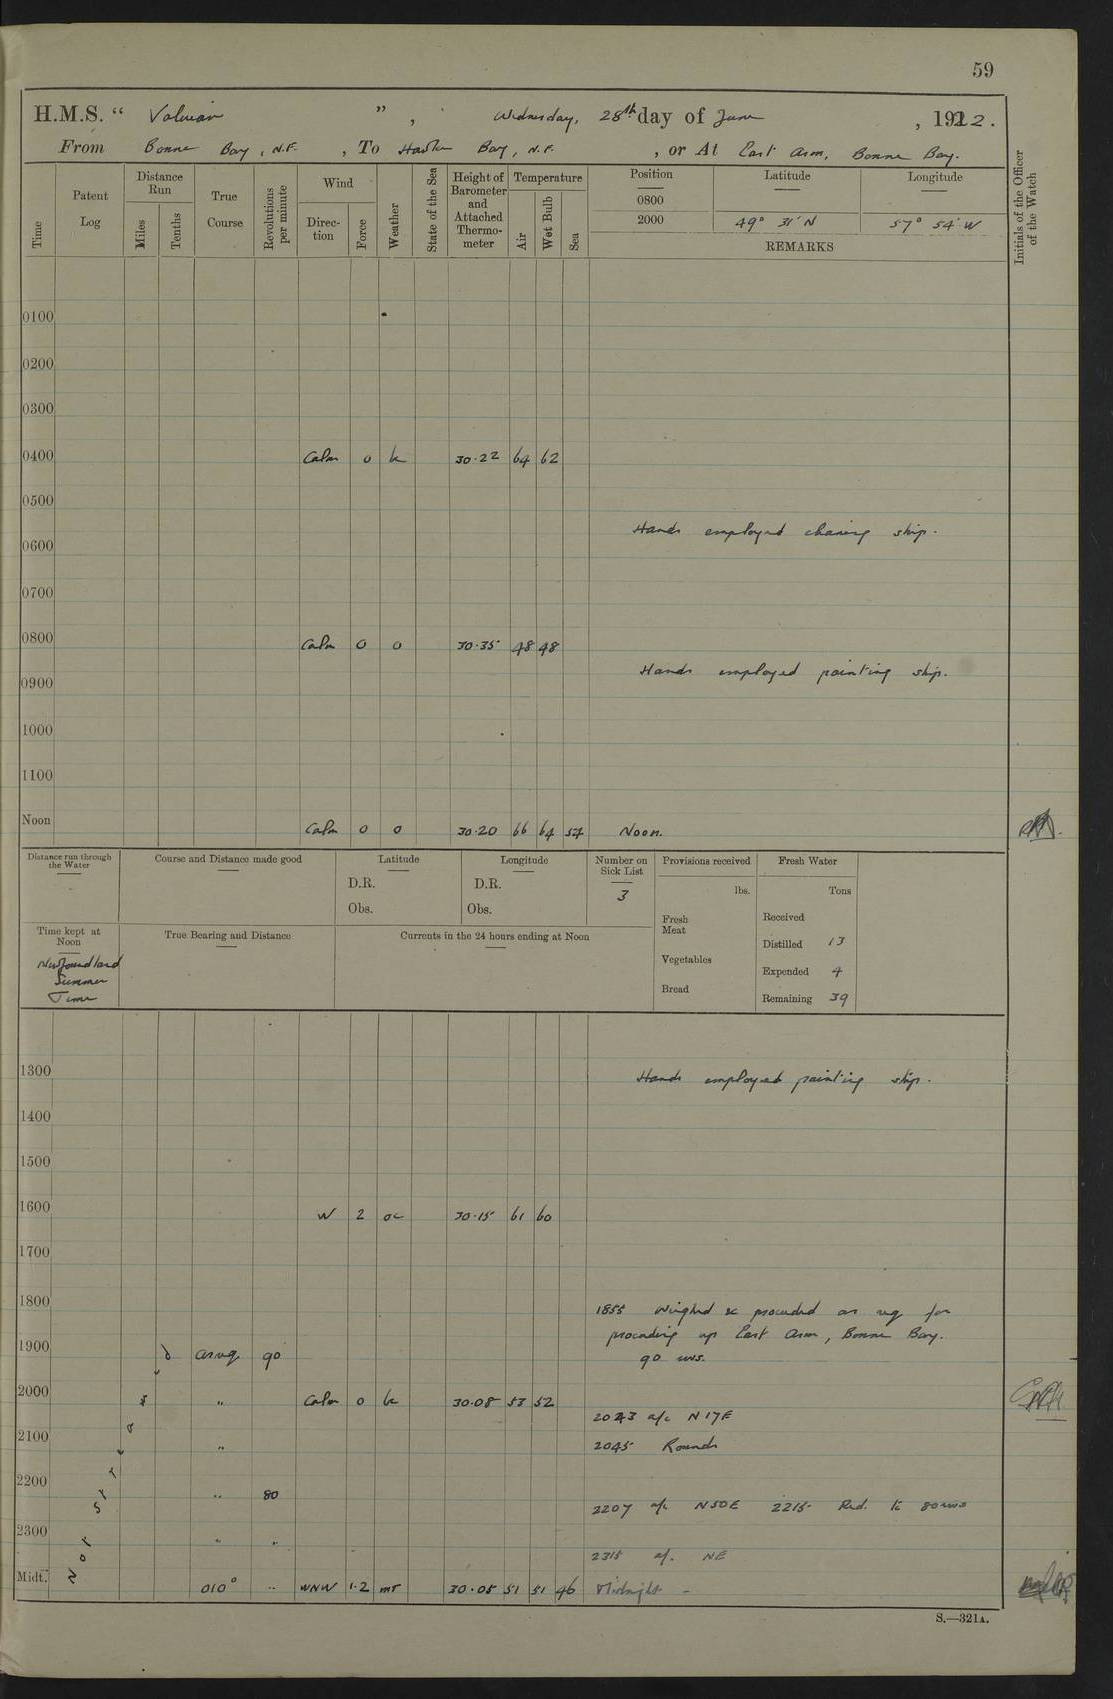 59
H.M.S. " Valerian ", Wednesday, 28th day of June, 1922.
From Bonne Bay, N.F., To Bay, N.F., or At East Arm, Bonne Bay.
Time
Patent Log
Distance Run
Miles
Tenths
True Course
Revolutions per minute
Wind
Direc-tion
Force
Weather
State of the Sea
Height of Barometer and Attached Thermo-meter
Temperature
Air
Wet Bulb
Sea
Position
0800
2000
Latitude
49° 31' N
Longitude
57° 54' W
REMARKS
Initials of the Officer of the Watch
0100
0200
0300
0400 Calm 0 bc 30.22 64 62
0500
Hands employed cleaning ship.
0600
0700
0800 Calm 0 o 30.35 48 48
Hands employed painting ship.
0900
1000
1100
Noon Calm 0 o 30.20 66 64 54 Noon.
Distance run through the Water
Course and Distance made good
Latitude
D.R.
Obs.
Longitude
D.R.
Obs.
Number on Sick List
3
Provisions received
lbs.
Fresh Meat
Vegetables
Bread
Fresh Water
Tons
Received
Distilled 13
Expended 4
Remaining 39
Time kept at Noon
Newfoundland Summer Time
True Bearing and Distance
Currents in the 24 hours ending at Noon
1300 Hands employed painting ship.
1400
1500
1600 W 2 oc 30.15 61 60
1700
1800
1855 Weighed & proceeded as req for
proceeding up East Arm, Bonne Bay.
1900 asreq 90 90 revs.
2000 " Calm 0 bc 30.08 53 52
2043 a/c N17E
2100 " 2045 Rounds
2200 " 80
2207 a/c N50E 2215 Red. to 80 revs
2300 " "
2315 a/c NE
Midt. 010° " WNW 1.2 mr 30.05 51 51 46 Midnight -
Not Streamed
S.—321A.